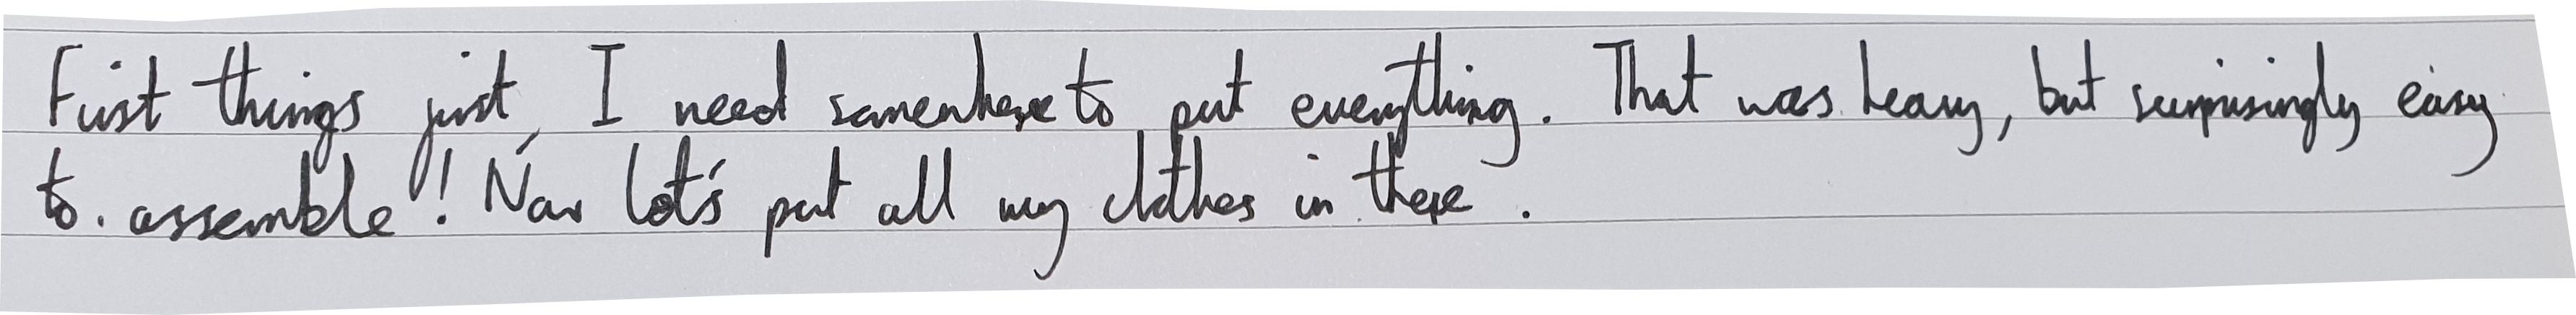 First things first, I need somewhere to put everything. That was heavy, but surprisingly easy
to assemble! Now let's put all my clothes in there.